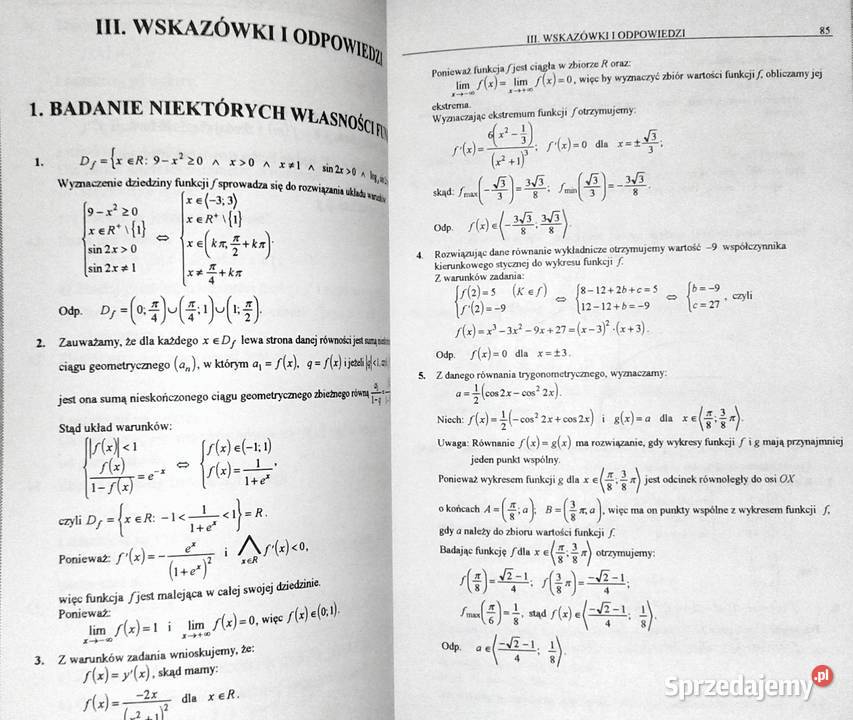 III. WSKAZÓWKI I ODPOWIEDZI
1. BADANIE NIEKTÓRYCH WŁASNOŚCI
1. D_f = {x ∈ R: 9 − x² ≥ 0 ∧ x > 0 ∧ x ≠ 1 ∧ sin 2x > 0 ∧
Wyznaczenie dziedziny funkcji f sprowadza się do rozwiązania układu warunków
{9 − x² ≥ 0; x ∈ R⁺ \ {1}; sin 2x > 0; sin 2x ≠ 1 ⇔ {x ∈ ⟨−3; 3⟩; x ∈ R⁺ \ {1}; x ∈ (kπ; π/2 + kπ); x ≠ π/4 + kπ
Odp. D_f = (0; π/4) ∪ (π/4; 1) ∪ (1; π/2).
2. Zauważamy, że dla każdego x ∈ D_f lewa strona danej równości jest sumą
ciągu geometrycznego (aₙ), w którym a₁ = f(x), q = f(x) i jeżeli |q| < 1,
jest ona sumą nieskończonego ciągu geometrycznego zbieżnego równą a₁/(1−q)
Stąd układ warunków:
{|f(x)| < 1; f(x)/(1 − f(x)) = e⁻ˣ ⇔ {f(x) ∈ (−1; 1); f(x) = 1/(1 + eˣ),
czyli D_f = {x ∈ R: −1 < 1/(1 + eˣ) < 1} = R.
Ponieważ: f'(x) = − eˣ/(1 + eˣ)² i ⋀_{x∈R} f'(x) < 0,
więc funkcja f jest malejąca w całej swojej dziedzinie.
Ponieważ:
lim_{x→−∞} f(x) = 1 i lim_{x→+∞} f(x) = 0, więc f(x) ∈ (0; 1).
3. Z warunków zadania wnioskujemy, że:
f(x) = y'(x), skąd mamy:
f(x) = −2x/(x² + 1)² dla x ∈ R.
III. WSKAZÓWKI I ODPOWIEDZI 85
Ponieważ funkcja f jest ciągła w zbiorze R oraz:
lim_{x→−∞} f(x) = lim_{x→+∞} f(x) = 0, więc by wyznaczyć zbiór wartości funkcji f, obliczamy jej
ekstrema.
Wyznaczając ekstremum funkcji f otrzymujemy:
f'(x) = 6(x² − 1/3)/(x² + 1)³; f'(x) = 0 dla x = ±√3/3;
skąd: f_max(−√3/3) = 3√3/8; f_min(√3/3) = −3√3/8.
Odp. f(x) ∈ ⟨−3√3/8; 3√3/8⟩.
4. Rozwiązując dane równanie wykładnicze otrzymujemy wartość −9 współczynnika
kierunkowego stycznej do wykresu funkcji f.
Z warunków zadania:
{f(2) = 5 (K ∈ f); f'(2) = −9 ⇔ {8 − 12 + 2b + c = 5; 12 − 12 + b = −9 ⇔ {b = −9; c = 27, czyli
f(x) = x³ − 3x² − 9x + 27 = (x − 3)² · (x + 3).
Odp. f(x) = 0 dla x = ±3.
5. Z danego równania trygonometrycznego, wyznaczamy:
a = 1/2 (cos 2x − cos² 2x).
Niech: f(x) = 1/2 (−cos² 2x + cos 2x) i g(x) = a dla x ∈ ⟨π/8; 3/8 π⟩.
Uwaga: Równanie f(x) = g(x) ma rozwiązanie, gdy wykresy funkcji f i g mają przynajmniej
jeden punkt wspólny.
Ponieważ wykresem funkcji g dla x ∈ ⟨π/8; 3/8 π⟩ jest odcinek równoległy do osi OX
o końcach A = (π/8; a); B = (3/8 π, a), więc ma on punkty wspólne z wykresem funkcji f,
gdy a należy do zbioru wartości funkcji f.
Badając funkcję f dla x ∈ ⟨π/8; 3/8 π⟩ otrzymujemy:
f(π/8) = (√2 − 1)/4; f(3/8 π) = (−√2 − 1)/4;
f_max(π/6) = 1/8, stąd f(x) ∈ ⟨(−√2 − 1)/4; 1/8⟩.
Odp. a ∈ ⟨(−√2 − 1)/4; 1/8⟩.
Sprzedajemy.pl